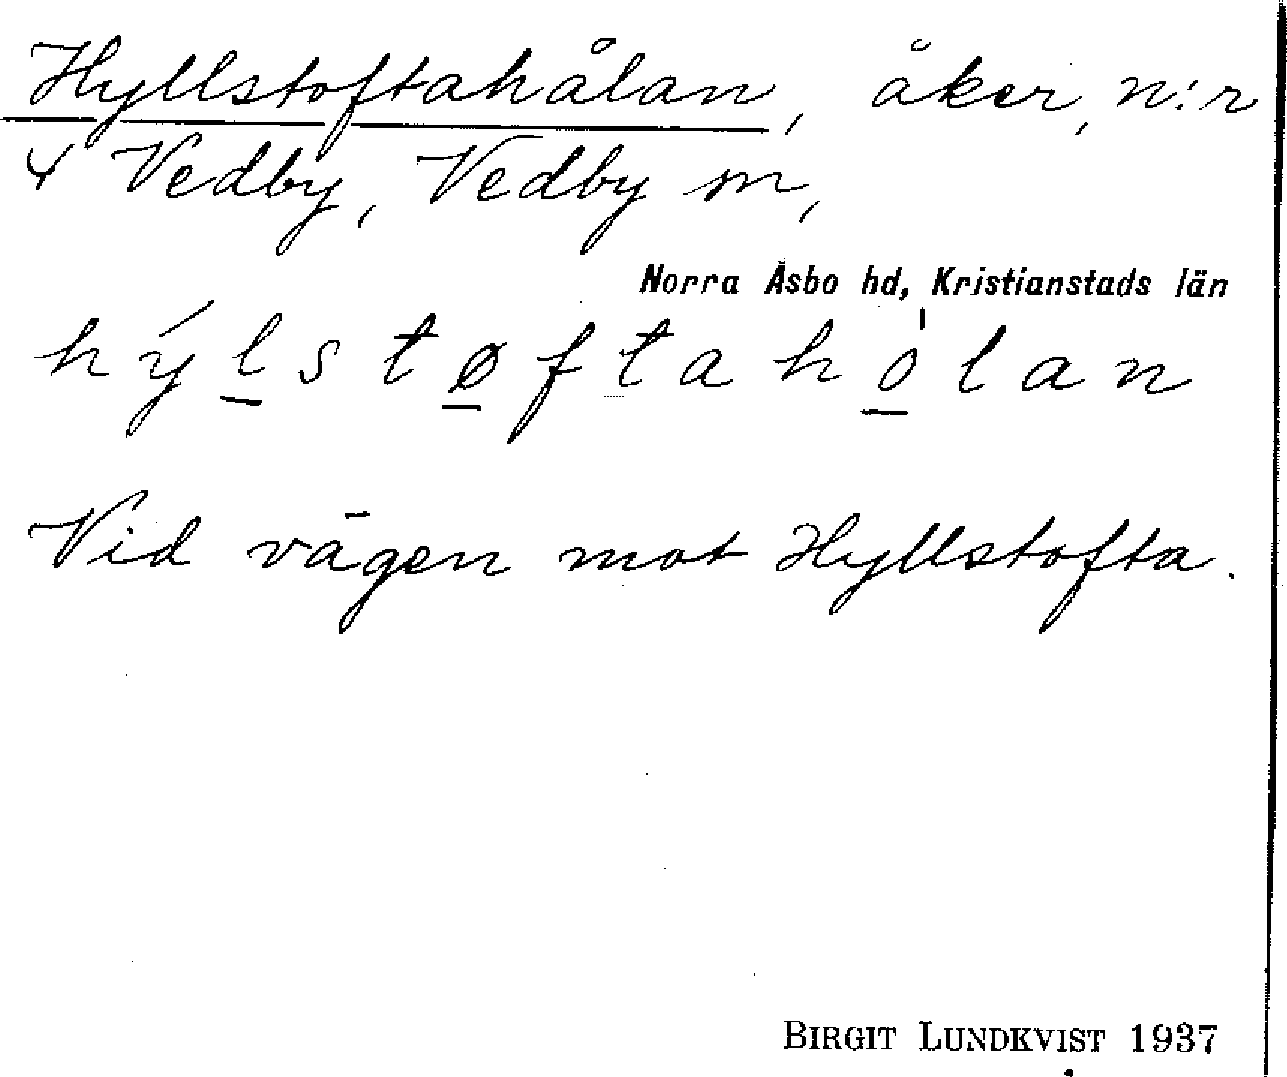 Hyllstoftahålan, åker, n:r
4 Vedby, Vedby sn,
Norra Åsbo hd, Kristianstads län
hýl̲stø̲ftaho̲̍lan
Vid vägen mot Hyllstofta.
BIRGIT LUNDKVIST 1937